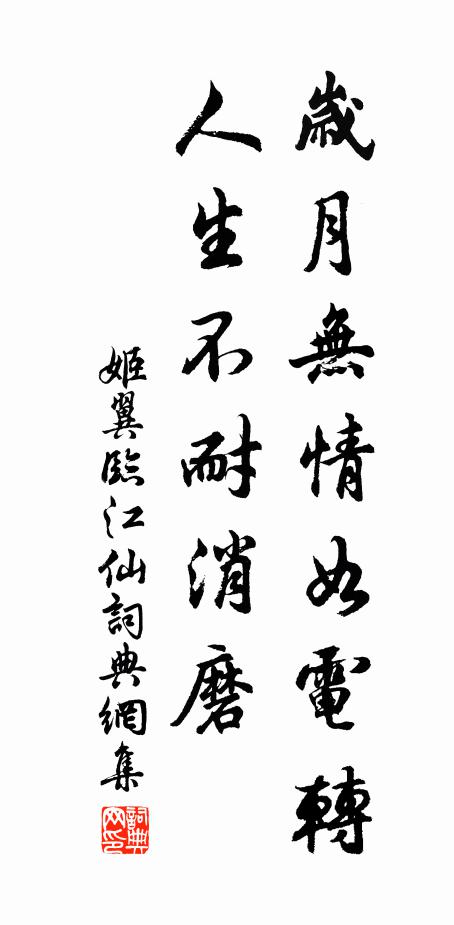 歲月無情如電轉
人生不耐消磨
姬翼臨江仙詞典網集
詞典網印